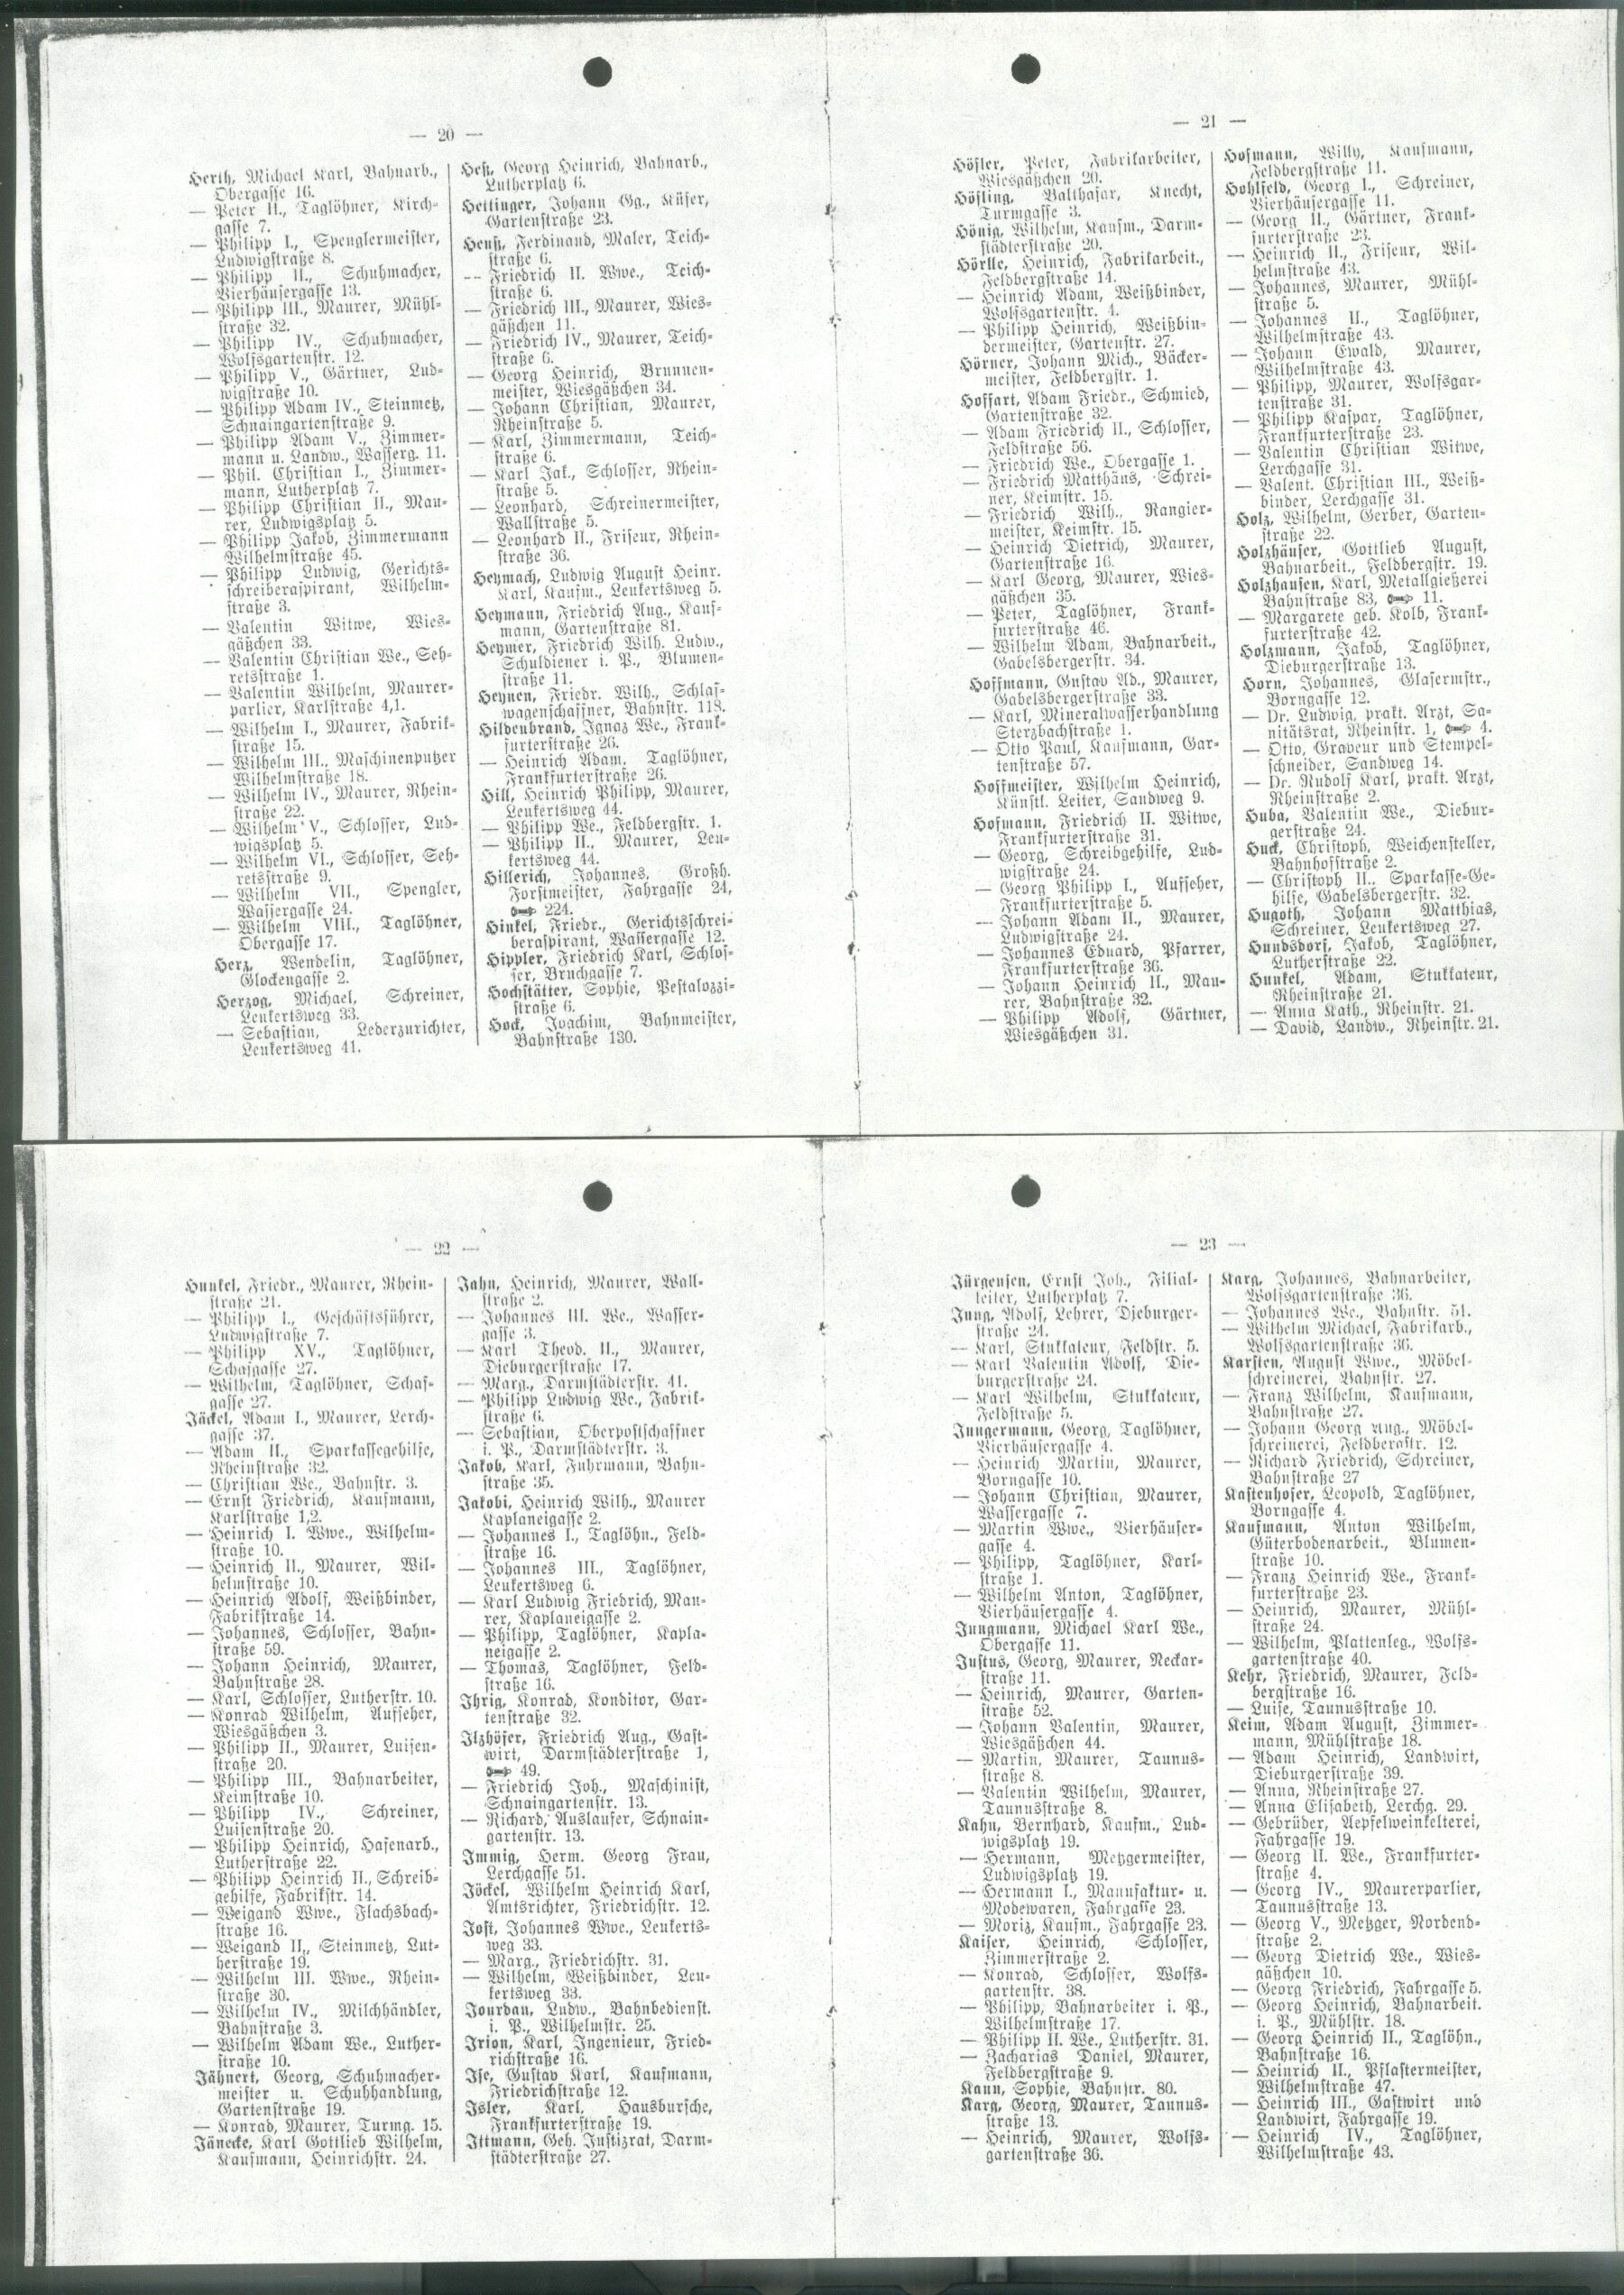 — 20 —
Herth, Michael Karl, Bahnarb.,
Obergasse 16.
— Peter II., Taglöhner, Kirch-
gasse 7.
— Philipp I., Spenglermeister,
Ludwigstraße 8.
— Philipp II., Schuhmacher,
Vierhäusergasse 13.
— Philipp III., Maurer, Mühl-
straße 32.
— Philipp IV., Schuhmacher,
Wolfsgartenstr. 12.
— Philipp V., Gärtner, Lud-
wigstraße 10.
— Philipp Adam IV., Steinmetz,
Schnaingartenstraße 9.
— Philipp Adam V., Zimmer-
mann u. Landw., Wasserg. 11.
— Phil. Christian I., Zimmer-
mann, Lutherplatz 7.
— Philipp Christian II., Mau-
rer, Ludwigsplatz 5.
— Philipp Jakob, Zimmermann
Wilhelmstraße 45.
— Philipp Ludwig, Gerichts-
schreiberaspirant, Wilhelm-
straße 3.
— Valentin Witwe, Wies-
gäßchen 33.
— Valentin Christian We., Seh-
retsstraße 1.
— Valentin Wilhelm, Maurer-
parlier, Karlstraße 4,1.
— Wilhelm I., Maurer, Fabrik-
straße 15.
— Wilhelm III., Maschinenputzer
Wilhelmstraße 18.
— Wilhelm IV., Maurer, Rhein-
straße 22.
— Wilhelm V., Schlosser, Lud-
wigsplatz 5.
— Wilhelm VI., Schlosser, Seh-
retsstraße 9.
— Wilhelm VII., Spengler,
Wassergasse 24.
— Wilhelm VIII., Taglöhner,
Obergasse 17.
Herz, Wendelin, Taglöhner,
Glockengasse 2.
Herzog, Michael, Schreiner,
Leukertsweg 33.
— Sebastian, Lederzurichter,
Leukertsweg 41.
Heß, Georg Heinrich, Bahnarb.,
Lutherplatz 6.
Hettinger, Johann Gg., Küfer,
Gartenstraße 23.
Heuß, Ferdinand, Maler, Teich-
straße 6.
— Friedrich II. Wwe., Teich-
straße 6.
— Friedrich III., Maurer, Wies-
gäßchen 11.
— Friedrich IV., Maurer, Teich-
straße 6.
— Georg Heinrich, Brunnen-
meister, Wiesgäßchen 34.
— Johann Christian, Maurer,
Rheinstraße 5.
— Karl, Zimmermann, Teich-
straße 6.
— Karl Jak., Schlosser, Rhein-
straße 5.
— Leonhard, Schreinermeister,
Wallstraße 5.
— Leonhard II., Friseur, Rhein-
straße 36.
Heymach, Ludwig August Heinr.
Karl, Kaufm., Leukertsweg 5.
Heymann, Friedrich Aug., Kauf-
mann, Gartenstraße 81.
Heymer, Friedrich Wilh. Ludw.,
Schuldiener i. P., Blumen-
straße 11.
Heynen, Friedr. Wilh., Schlaf-
wagenschaffner, Bahnstr. 118.
Hildenbrand, Ignaz We., Frank-
furterstraße 26.
— Heinrich Adam, Taglöhner,
Frankfurterstraße 26.
Hill, Heinrich Philipp, Maurer,
Leukertsweg 44.
— Philipp We., Feldbergstr. 1.
— Philipp II., Maurer, Leu-
kertsweg 44.
Hillerich, Johannes, Großh.
Forstmeister, Fahrgasse 24,
224.
Hinkel, Friedr., Gerichtsschrei-
beraspirant, Wassergasse 12.
Hippler, Friedrich Karl, Schlos-
ser, Bruchgasse 7.
Hochstätter, Sophie, Pestalozzi-
straße 6.
Hock, Joachim, Bahnmeister,
Bahnstraße 130.
— 21 —
Höfler, Peter, Fabrikarbeiter,
Wiesgäßchen 20.
Höfling, Balthasar, Knecht,
Turmgasse 3.
Hönig, Wilhelm, Kaufm., Darm-
städterstraße 20.
Hörlle, Heinrich, Fabrikarbeit.,
Feldbergstraße 14.
— Heinrich Adam, Weißbinder,
Wolfsgartenstr. 4.
— Philipp Heinrich, Weißbin-
dermeister, Gartenstr. 27.
Hörner, Johann Mich., Bäcker-
meister, Feldbergstr. 1.
Hoffart, Adam Friedr., Schmied,
Gartenstraße 32.
— Adam Friedrich II., Schlosser,
Feldstraße 56.
— Friedrich We., Obergasse 1.
— Friedrich Matthäus, Schrei-
ner, Keimstr. 15.
— Friedrich Wilh., Rangier-
meister, Keimstr. 15.
— Heinrich Dietrich, Maurer,
Gartenstraße 16.
— Karl Georg, Maurer, Wies-
gäßchen 35.
— Peter, Taglöhner, Frank-
furterstraße 46.
— Wilhelm Adam, Bahnarbeit.,
Gabelsbergerstr. 34.
Hoffmann, Gustav Ad., Maurer,
Gabelsbergerstraße 33.
— Karl, Mineralwasserhandlung
Sterzbachstraße 1.
— Otto Paul, Kaufmann, Gar-
tenstraße 57.
Hoffmeister, Wilhelm Heinrich,
Künstl. Leiter, Sandweg 9.
Hofmann, Friedrich II. Witwe,
Frankfurterstraße 31.
— Georg, Schreibgehilfe, Lud-
wigstraße 24.
— Georg Philipp I., Aufseher,
Frankfurterstraße 5.
— Johann Adam II., Maurer,
Ludwigstraße 24.
— Johannes Eduard, Pfarrer,
Frankfurterstraße 36.
— Johann Heinrich II., Mau-
rer, Bahnstraße 32.
— Philipp Adolf, Gärtner,
Wiesgäßchen 31.
Hofmann, Willy, Kaufmann,
Feldbergstraße 11.
Hohlfeld, Georg I., Schreiner,
Vierhäusergasse 11.
— Georg II., Gärtner, Frank-
furterstraße 23.
— Heinrich II., Friseur, Wil-
helmstraße 43.
— Johannes, Maurer, Mühl-
straße 5.
— Johannes II., Taglöhner,
Wilhelmstraße 43.
— Johann Ewald, Maurer,
Wilhelmstraße 43.
— Philipp, Maurer, Wolfsgar-
tenstraße 31.
— Philipp Kaspar, Taglöhner,
Frankfurterstraße 23.
— Valentin Christian Witwe,
Lerchgasse 31.
— Valent. Christian III., Weiß-
binder, Lerchgasse 31.
Holz, Wilhelm, Gerber, Garten-
straße 22.
Holzhäuser, Gottlieb August,
Bahnarbeit., Feldbergstr. 19.
Holzhausen, Karl, Metallgießerei
Bahnstraße 83, 11.
— Margarete geb. Kolb, Frank-
furterstraße 42.
Holzmann, Jakob, Taglöhner,
Dieburgerstraße 13.
Horn, Johannes, Glasermstr.,
Borngasse 12.
— Dr. Ludwig, prakt. Arzt, Sa-
nitätsrat, Rheinstr. 1, 4.
— Otto, Graveur und Stempel-
schneider, Sandweg 14.
— Dr. Rudolf Karl, prakt. Arzt,
Rheinstraße 2.
Huba, Valentin We., Diebur-
gerstraße 24.
Huck, Christoph, Weichensteller,
Bahnhofstraße 2.
— Christoph II., Sparkasse-Ge-
hilfe, Gabelsbergerstr. 32.
Hugoth, Johann Matthias,
Schreiner, Leukertsweg 27.
Hundsdorf, Jakob, Taglöhner,
Lutherstraße 22.
Hunkel, Adam, Stukkateur,
Rheinstraße 21.
— Anna Kath., Rheinstr. 21.
— David, Landw., Rheinstr. 21.
— 22 —
Hunkel, Friedr., Maurer, Rhein-
straße 21.
— Philipp I., Geschäftsführer,
Ludwigstraße 7.
— Philipp XV., Taglöhner,
Schafgasse 27.
— Wilhelm, Taglöhner, Schaf-
gasse 27.
Jäckel, Adam I., Maurer, Lerch-
gasse 37.
— Adam II., Sparkassegehilfe,
Rheinstraße 32.
— Christian We., Bahnstr. 3.
— Ernst Friedrich, Kaufmann,
Karlstraße 1,2.
— Heinrich I. Wwe., Wilhelm-
straße 10.
— Heinrich II., Maurer, Wil-
helmstraße 10.
— Heinrich Adolf, Weißbinder,
Fabrikstraße 14.
— Johannes, Schlosser, Bahn-
straße 59.
— Johann Heinrich, Maurer,
Bahnstraße 28.
— Karl, Schlosser, Lutherstr. 10.
— Konrad Wilhelm, Aufseher,
Wiesgäßchen 3.
— Philipp II., Maurer, Luisen-
straße 20.
— Philipp III., Bahnarbeiter,
Keimstraße 10.
— Philipp IV., Schreiner,
Luisenstraße 20.
— Philipp Heinrich, Hafenarb.,
Lutherstraße 22.
— Philipp Heinrich II., Schreib-
gehilfe, Fabrikstr. 14.
— Weigand Wwe., Flachsbach-
straße 16.
— Weigand II., Steinmetz, Lut-
herstraße 19.
— Wilhelm III. Wwe., Rhein-
straße 30.
— Wilhelm IV., Milchhändler,
Bahnstraße 3.
— Wilhelm Adam We., Luther-
straße 10.
Jähnert, Georg, Schuhmacher-
meister u. Schuhhandlung,
Gartenstraße 19.
— Konrad, Maurer, Turmg. 15.
Jänecke, Karl Gottlieb Wilhelm,
Kaufmann, Heinrichstr. 24.
Jahn, Heinrich, Maurer, Wall-
straße 2.
— Johannes III. We., Wasser-
gasse 3.
— Karl Theod. II., Maurer,
Dieburgerstraße 17.
— Marg., Darmstädterstr. 41.
— Philipp Ludwig We., Fabrik-
straße 6.
— Sebastian, Oberpostschaffner
i. P., Darmstädterstr. 3.
Jakob, Karl, Fuhrmann, Bahn-
straße 35.
Jakobi, Heinrich Wilh., Maurer
Kaplaneigasse 2.
— Johannes I., Taglöhn., Feld-
straße 16.
— Johannes III., Taglöhner,
Leukertsweg 6.
— Karl Ludwig Friedrich, Mau-
rer, Kaplaneigasse 2.
— Philipp, Taglöhner, Kapla-
neigasse 2.
— Thomas, Taglöhner, Feld-
straße 16.
Ihrig, Konrad, Konditor, Gar-
tenstraße 32.
Ilzhöfer, Friedrich Aug., Gast-
wirt, Darmstädterstraße 1,
49.
— Friedrich Joh., Maschinist,
Schnaingartenstr. 13.
— Richard, Auslaufer, Schnain-
gartenstr. 13.
Immig, Herm. Georg Frau,
Lerchgasse 51.
Jöckel, Wilhelm Heinrich Karl,
Amtsrichter, Friedrichstr. 12.
Jost, Johannes Wwe., Leukerts-
weg 33.
— Marg., Friedrichstr. 31.
— Wilhelm, Weißbinder, Leu-
kertsweg 33.
Jourdan, Ludw., Bahnbedienst.
i. P., Wilhelmstr. 25.
Irion, Karl, Ingenieur, Fried-
richstraße 16.
Ise, Gustav Karl, Kaufmann,
Friedrichstraße 12.
Isler, Karl, Hausbursche,
Frankfurterstraße 19.
Ittmann, Geh. Justizrat, Darm-
städterstraße 27.
— 23 —
Jürgensen, Ernst Joh., Filial-
leiter, Lutherplatz 7.
Jung, Adolf, Lehrer, Dieburger-
straße 24.
— Karl, Stukkateur, Feldstr. 5.
— Karl Valentin Adolf, Die-
burgerstraße 24.
— Karl Wilhelm, Stukkateur,
Feldstraße 5.
Jungermann, Georg, Taglöhner,
Vierhäusergasse 4.
— Heinrich Martin, Maurer,
Borngasse 10.
— Johann Christian, Maurer,
Wassergasse 7.
— Martin Wwe., Vierhäuser-
gasse 4.
— Philipp, Taglöhner, Karl-
straße 1.
— Wilhelm Anton, Taglöhner,
Vierhäusergasse 4.
Jungmann, Michael Karl We.,
Obergasse 11.
Justus, Georg, Maurer, Neckar-
straße 11.
— Heinrich, Maurer, Garten-
straße 52.
— Johann Valentin, Maurer,
Wiesgäßchen 44.
— Martin, Maurer, Taunus-
straße 8.
— Valentin Wilhelm, Maurer,
Taunusstraße 8.
Kahn, Bernhard, Kaufm., Lud-
wigsplatz 19.
— Hermann, Metzgermeister,
Ludwigsplatz 19.
— Hermann I., Manufaktur- u.
Modewaren, Fahrgasse 23.
— Moriz, Kaufm., Fahrgasse 23.
Kaiser, Heinrich, Schlosser,
Zimmerstraße 2.
— Konrad, Schlosser, Wolfs-
gartenstr. 38.
— Philipp, Bahnarbeiter i. P.,
Wilhelmstraße 17.
— Philipp II. We., Lutherstr. 31.
— Zacharias Daniel, Maurer,
Feldbergstraße 9.
Kann, Sophie, Bahnstr. 80.
Karg, Georg, Maurer, Taunus-
straße 13.
— Heinrich, Maurer, Wolfs-
gartenstraße 36.
Karg, Johannes, Bahnarbeiter,
Wolfsgartenstraße 36.
— Johannes We., Bahnstr. 51.
— Wilhelm Michael, Fabrikarb.,
Wolfsgartenstraße 36.
Karsten, August Wwe., Möbel-
schreinerei, Bahnstr. 27.
— Franz Wilhelm, Kaufmann,
Bahnstraße 27.
— Johann Georg Aug., Möbel-
schreinerei, Feldbergstr. 12.
— Richard Friedrich, Schreiner,
Bahnstraße 27
Kastenhofer, Leopold, Taglöhner,
Borngasse 4.
Kaufmann, Anton Wilhelm,
Güterbodenarbeit., Blumen-
straße 10.
— Franz Heinrich We., Frank-
furterstraße 23.
— Heinrich, Maurer, Mühl-
straße 24.
— Wilhelm, Plattenleg., Wolfs-
gartenstraße 40.
Kehr, Friedrich, Maurer, Feld-
bergstraße 16.
— Luise, Taunusstraße 10.
Keim, Adam August, Zimmer-
mann, Mühlstraße 18.
— Adam Heinrich, Landwirt,
Dieburgerstraße 39.
— Anna, Rheinstraße 27.
— Anna Elisabeth, Lerchg. 29.
— Gebrüder, Aepfelweinkelterei,
Fahrgasse 19.
— Georg II. We., Frankfurter-
straße 4.
— Georg IV., Maurerparlier,
Taunusstraße 13.
— Georg V., Metzger, Nordend-
straße 2.
— Georg Dietrich We., Wies-
gäßchen 10.
— Georg Friedrich, Fahrgasse 5.
— Georg Heinrich, Bahnarbeit.
i. P., Mühlstr. 18.
— Georg Heinrich II., Taglöhn.,
Bahnstraße 16.
— Heinrich II., Pflastermeister,
Wilhelmstraße 47.
— Heinrich III., Gastwirt und
Landwirt, Fahrgasse 19.
— Heinrich IV., Taglöhner,
Wilhelmstraße 43.